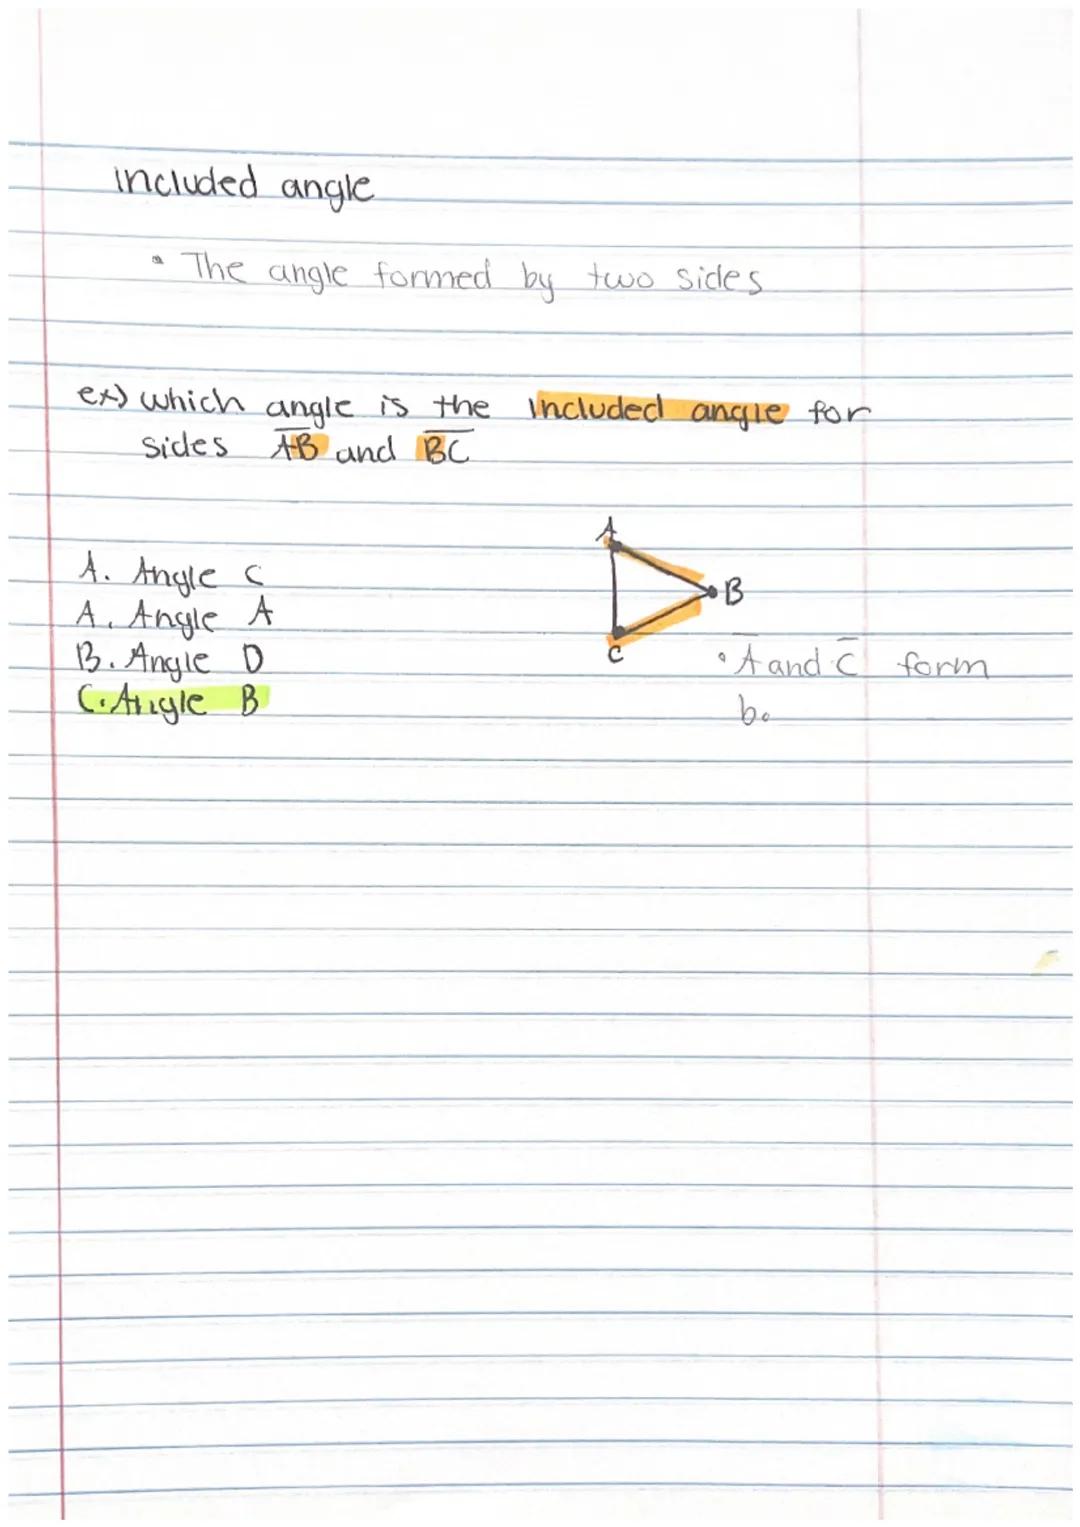 included angle
• The angle formed by two sides
ex) which angle is the included angle for
sides AB and BC
A. Angle C
A. Angle A
B. Angle D
C. Angle B
A
B
C
• A and C form
b.